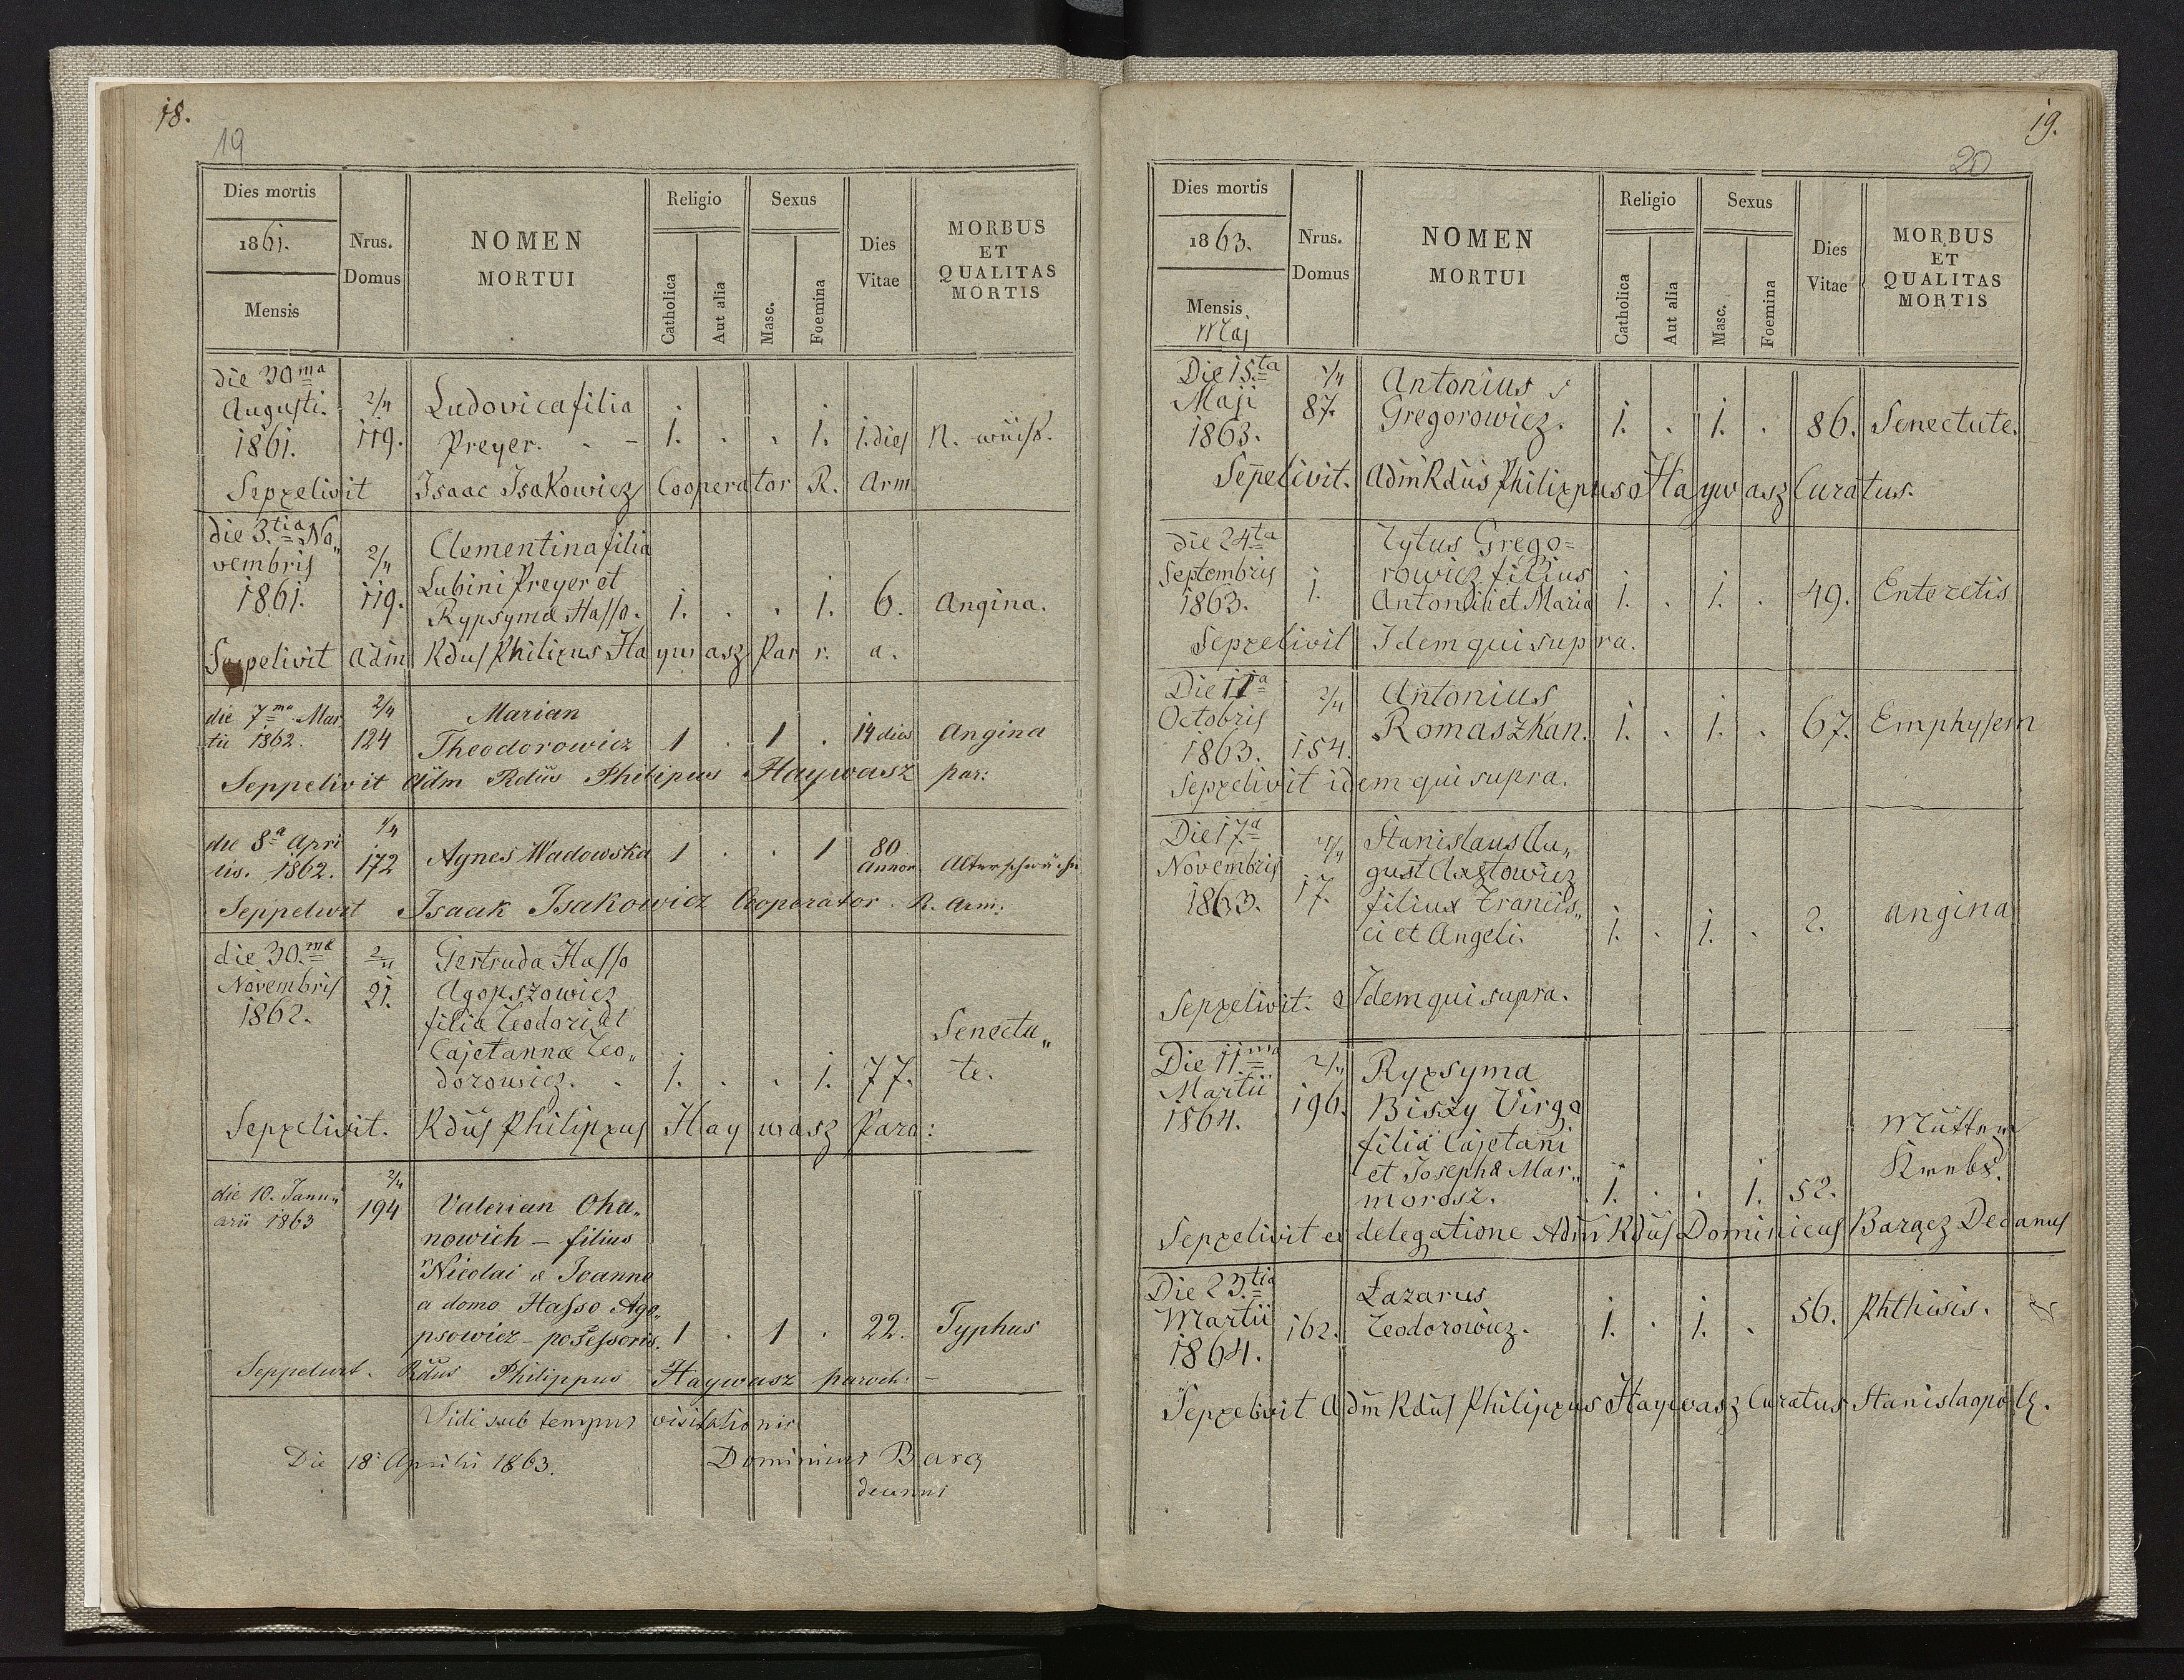 18.
19
Dies mortis
1861.
Mensis
Nrus.
Domus
NOMEN
MORTUI
Religio
Catholica
Aut alia
Sexus
Masc.
Foemina
Dies
Vitae
MORBUS
ET
QUALITAS
MORTIS
die 30ma
Augusti.
1861.
2/4
119.
Ludovica filia
Preyer. . -
1. . . 1. 1. dies
N.
Seppelivit Isaac Isakowicz Cooperator R. Arm
die 3.tia No„
vembris
1861.
2/4
119.
Clementina filia
Lubini Preyer et
Rypsyma Hasso.
1. . . 1. 6. Angina.
Seppelivit Adm Rdus Philipus Haywasz Par r. a.
die 7ma Mar
tii 1862.
2/4
124
Marian
Theodorowicz
1 . 1 . 14 dies Angina
Seppelivit Adm Rdus Philipus Haywasz par:
die 8a Apri
lis. 1862.
1/4
172
Agnes Wadowska
1 . . 1 80
Annor.
Altersschwäche
Seppelivit Isaak Isakowicz Cooperator R. Arm:
die 30.ma
Novembris
1862.
2/4
21.
Gertruda Hasso
Agopszowicz
filia Teodori et
Cajetannæ Teo„
dorowicz. .
1. . . 1. 77.
Senectu„
te.
Seppelivit. Rdus Philippus Haywasz Paro:
die 10. Janu„
arii 1863
2/4
194
Valerian Oha„
nowich - filius
Nicolai & Joanna
a domo Hasso Ago„
psowicz - possessoris.
1 . 1 . 22. Typhus
Seppelivit. Rdus Philippus Haywasz paroch: -
Vidi sub tempus visitationis
Die 18 Aprilis 1863. Dominicus Barącz
decanus
19.
20
Dies mortis
1863.
Mensis.
Maj
Nrus.
Domus
NOMEN
MORTUI
Religio
Catholica
Aut alia
Sexus
Masc.
Foemina
Dies
Vitae
MORBUS
ET
QUALITAS
MORTIS
Die 15.ta
Maji
1863.
87.
Antonius
Gregorowicz.
1. . 1. . 86. Senectute.
Sepelivit. Adm Rdus Philippus Haywasz Curatus.
die 24.ta
Septembris
1863.
1.
Tytus Grego=
rowicz filius
Antonii et Maria
1. . 1. . 49. Enteretis
Seppelivit Idem qui supra.
Die 11a
Octobris
1863.
2/4
154.
Antonius
Romaszkan.
1. . 1. . 67. Emphysem
Seppelivit idem qui supra.
Die 17.a
Novembris
1863.
17.
Stanislaus Au„
gust Axętowicz
filius Francis„
ci et Angeli.
1. . 1. . 2. angina
Seppelivit. Idem qui supra.
Die 11ma
Martii
1864.
2/4
196.
Rypsyma
Biszy Virgo
filia Cajetani
et Josepha Mar„
morosz.
1. . . 1. 52.
Mutter
Krebs.
Seppelivit ex delegatione Adm Rdus Dominicus Barącz Decanus
Die 23.tia
Martii
1864.
162.
Łazarus
Teodorowicz.
1. . 1. . 56. Phthisis.
Seppelivit Adm Rdus Philippus Haywasz Curatus Stanislaopolis.